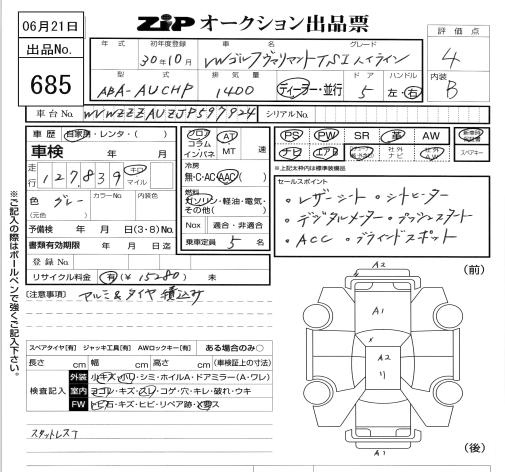 06月21日
出品No.
685
ZIPオークション出品票
評価点
4
内装
B
年式 初年度登録 車名 グレード
30年10月 VWゴルフヴァリアントTSIハイライン
型式 排気量 ドア ハンドル
ABA-AUCHP 1400 ディーラー・並行 5 左・右
車台No. WVWZZZAUZJP597924 シリアルNo.
車歴 自家用・レンタ・( )
車検 年 月
走行 127,839 キロ マイル
色 グレー カラーNo. 内装色
(元色)
予備検 年 月 日(3・8)No.
書類有効期限 年 月 日迄
登録No.
リサイクル料金 有 ¥15280 未
フロア コラム インパネ AT MT 速
冷房
無・C・AC・AAC( )
燃料
ガソリン・軽油・電気・その他( )
Nox 適合・非適合
乗車定員 5 名
PS PW SR 革 AW
ナビ エアB 社外ナビ 社外AW
スペアキー
*上記太枠内は標準装備品
セールスポイント
・レザーシート ・シートヒーター
・デジタルメーター ・プッシュスタート
・ACC ・ブラインドスポット
※ご記入の際はボールペンで強くご記入下さい。
[注意事項] アルミ&タイヤ積込み
スペアタイヤ[有] ジャッキ工具[有] AWロックキー[有] ある場合のみ○
長さ cm 幅 cm 高さ cm (車検証上の寸法)
検査記入
外装 小キズ・小凹・シミ・ホイルA・ドアミラー(A・ワレ)
室内 ヨゴレ・キズ・スレ・コゲ・穴・キレ・破れ・ウキ
FW トビ石・キズ・ヒビ・リペア跡・×要ス
スタットレスT
(前)
A2
A1
A2
A1
(後)